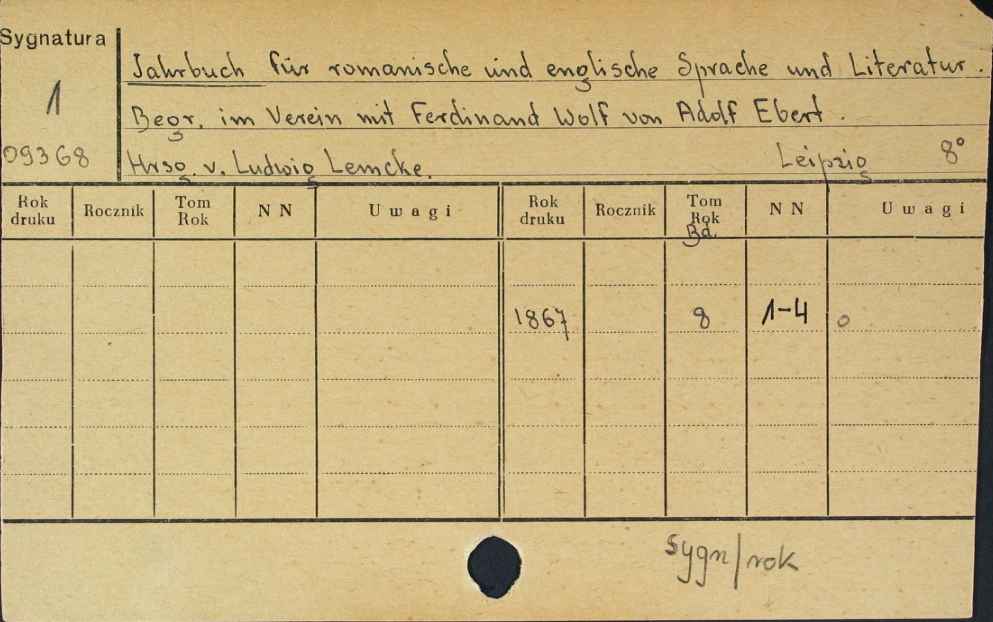 Sygnatura
1
09368
Jahrbuch für romanische und englische Sprache und Literatur.
Begr. im Verein mit Ferdinand Wolf von Adolf Ebert.
Hrsg. v. Ludwig Lemcke. Leipzig 8°
Rok druku Rocznik Tom Rok N N Uwagi Rok druku Rocznik Tom Rok Bd. N N Uwagi
1867 8 1-4 o
sygn/rok